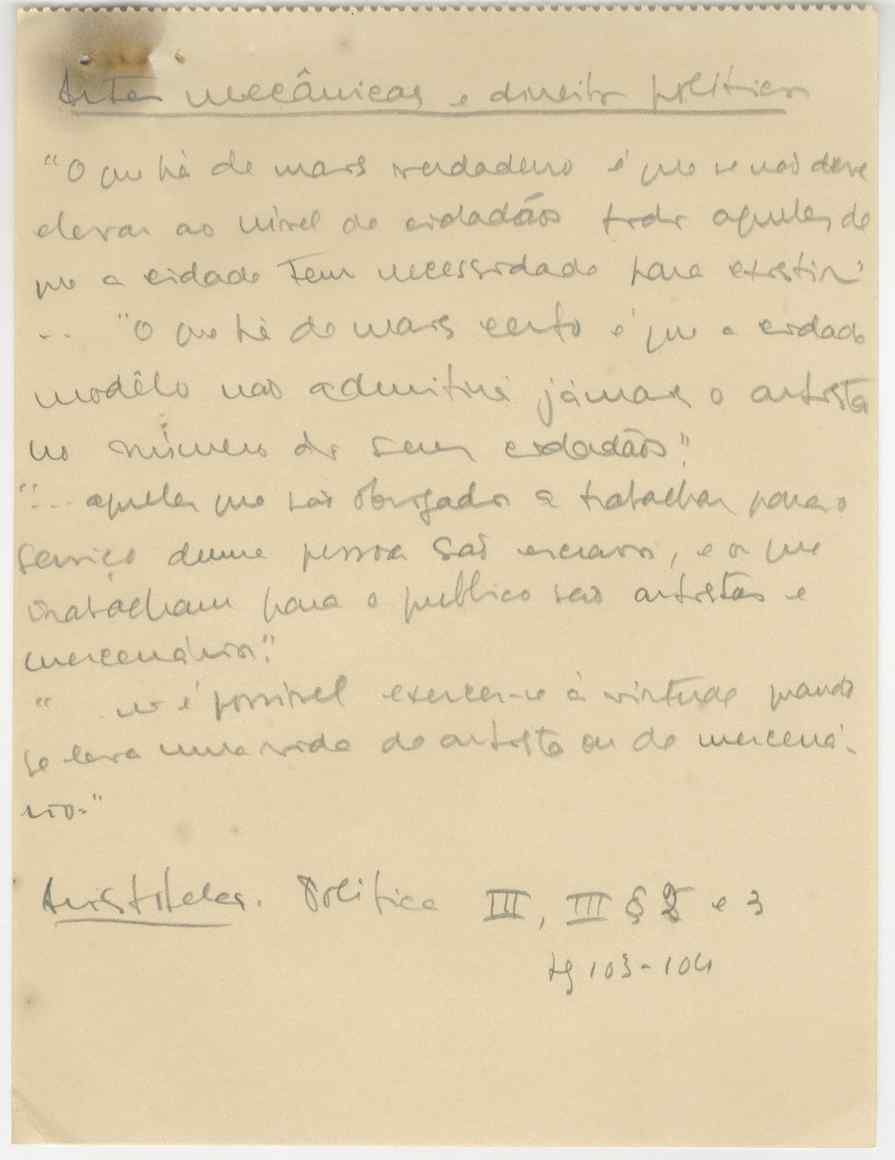 Artes mecânicas e direito político
"O que há de mais verdadeiro é que se não deve
elevar ao nível de cidadãos todos aqueles de
que a cidade tem necessidade para existir"
... "O que há de mais certo é que a cidade
modêlo não admitirá jámais o artista
no número de seus cidadãos".
"... aqueles que são obrigados a trabalhar para o
serviço duma pessoa são escravos, e os que
trabalham para o publico são artistas e
mercenários".
" é possível exercer-se à virtude quando
se leva uma vida de artista ou de mercená-
rio."
Aristóteles. Política III, III § 2 e 3
103-104